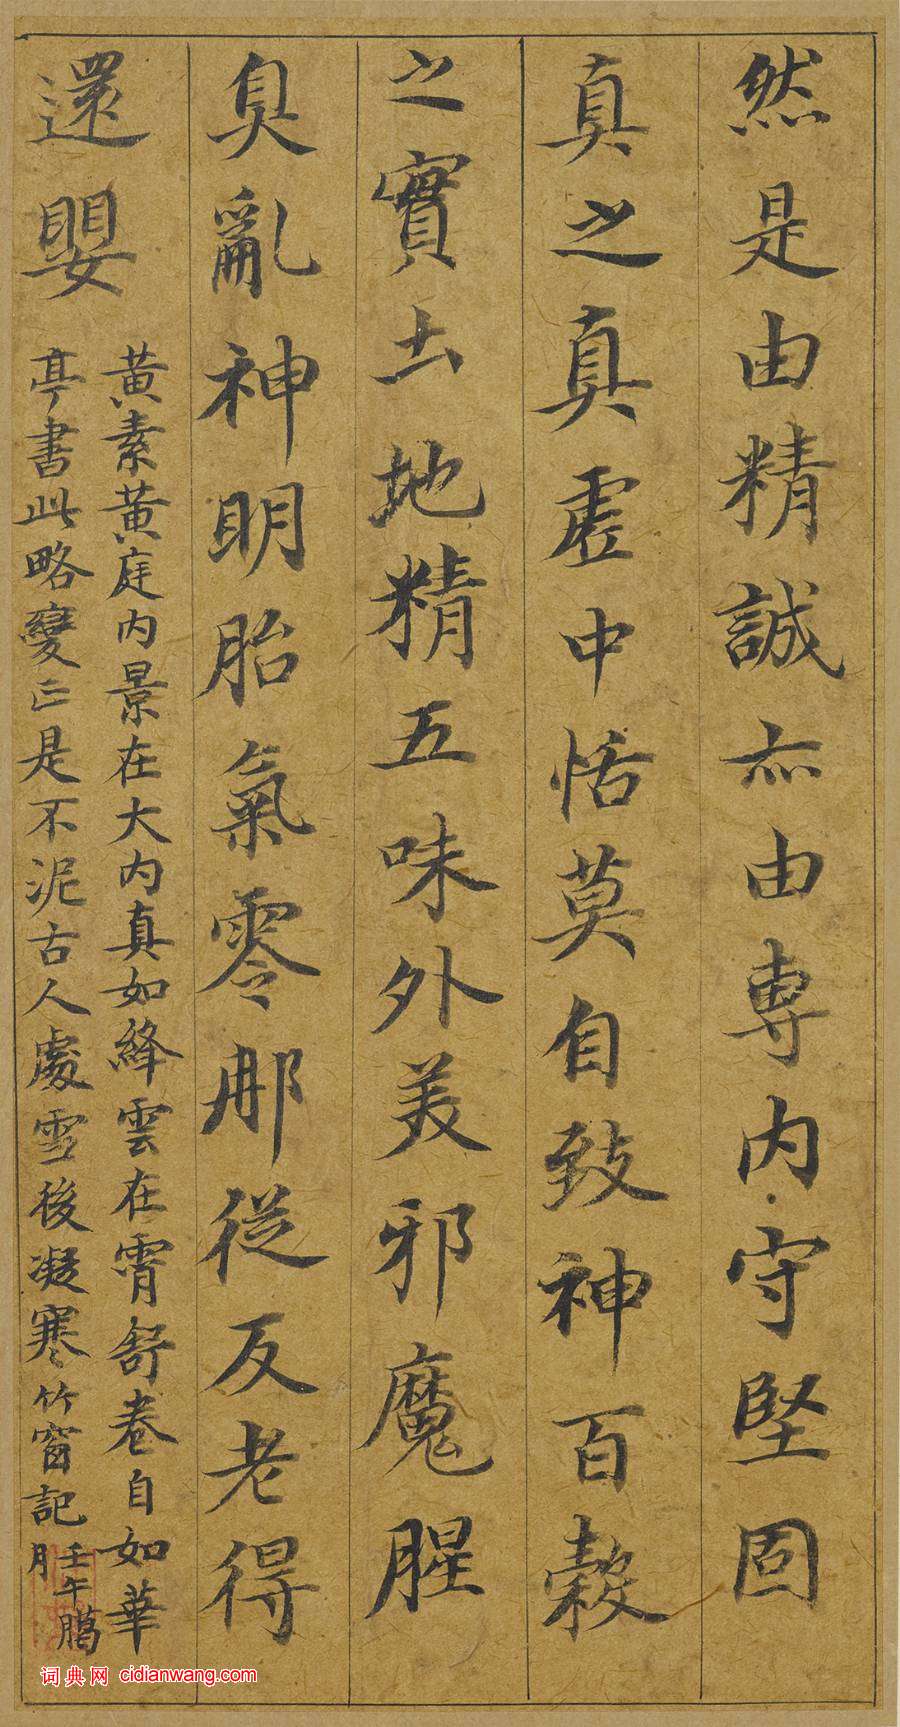 然是由精誠亦由專内守堅固
真之真虛中恬莫自致神百穀
之實土地精五味外美邪魔腥
臭亂神明胎氣零那從反老得
還嬰
黄素黄庭内景在大内真如絳雲在霄舒卷自如華
亭書此略變正是不泥古人處雪後凝寒竹窗記
壬午臈
月
词典网 cidianwang.com